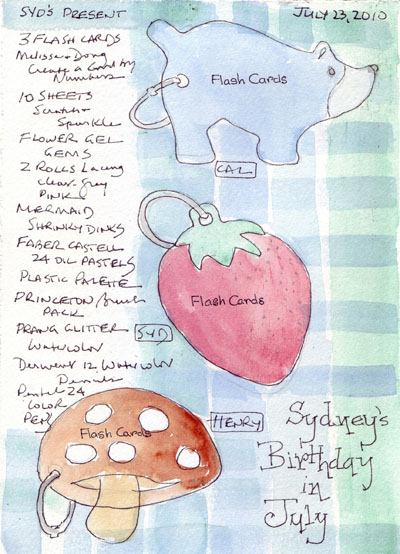 SYD'S PRESENT
JULY 23, 2010
3 FLASH CARDS
Melissa + Doug
Create a
Numbers
10 SHEETS
Scratch +
Sparkle
FLOWER GEL
GEMS
2 ROLLS Lacing
clear-grey
PINK
MERMAID
SHRINKY DINKS
FABER CASTELL
24 OIL PASTELS
PLASTIC PALETTE
PRINCETON/Brush
PACK
PRANG GLITTER
WATERCOLOR
Derwent 12 WATERCOLOR
Pentel 24
COLOR
PENS
Flash Cards
CAL
Flash Cards
SYD
Flash Cards
HENRY
Sydney's
BIRTHday
in
July